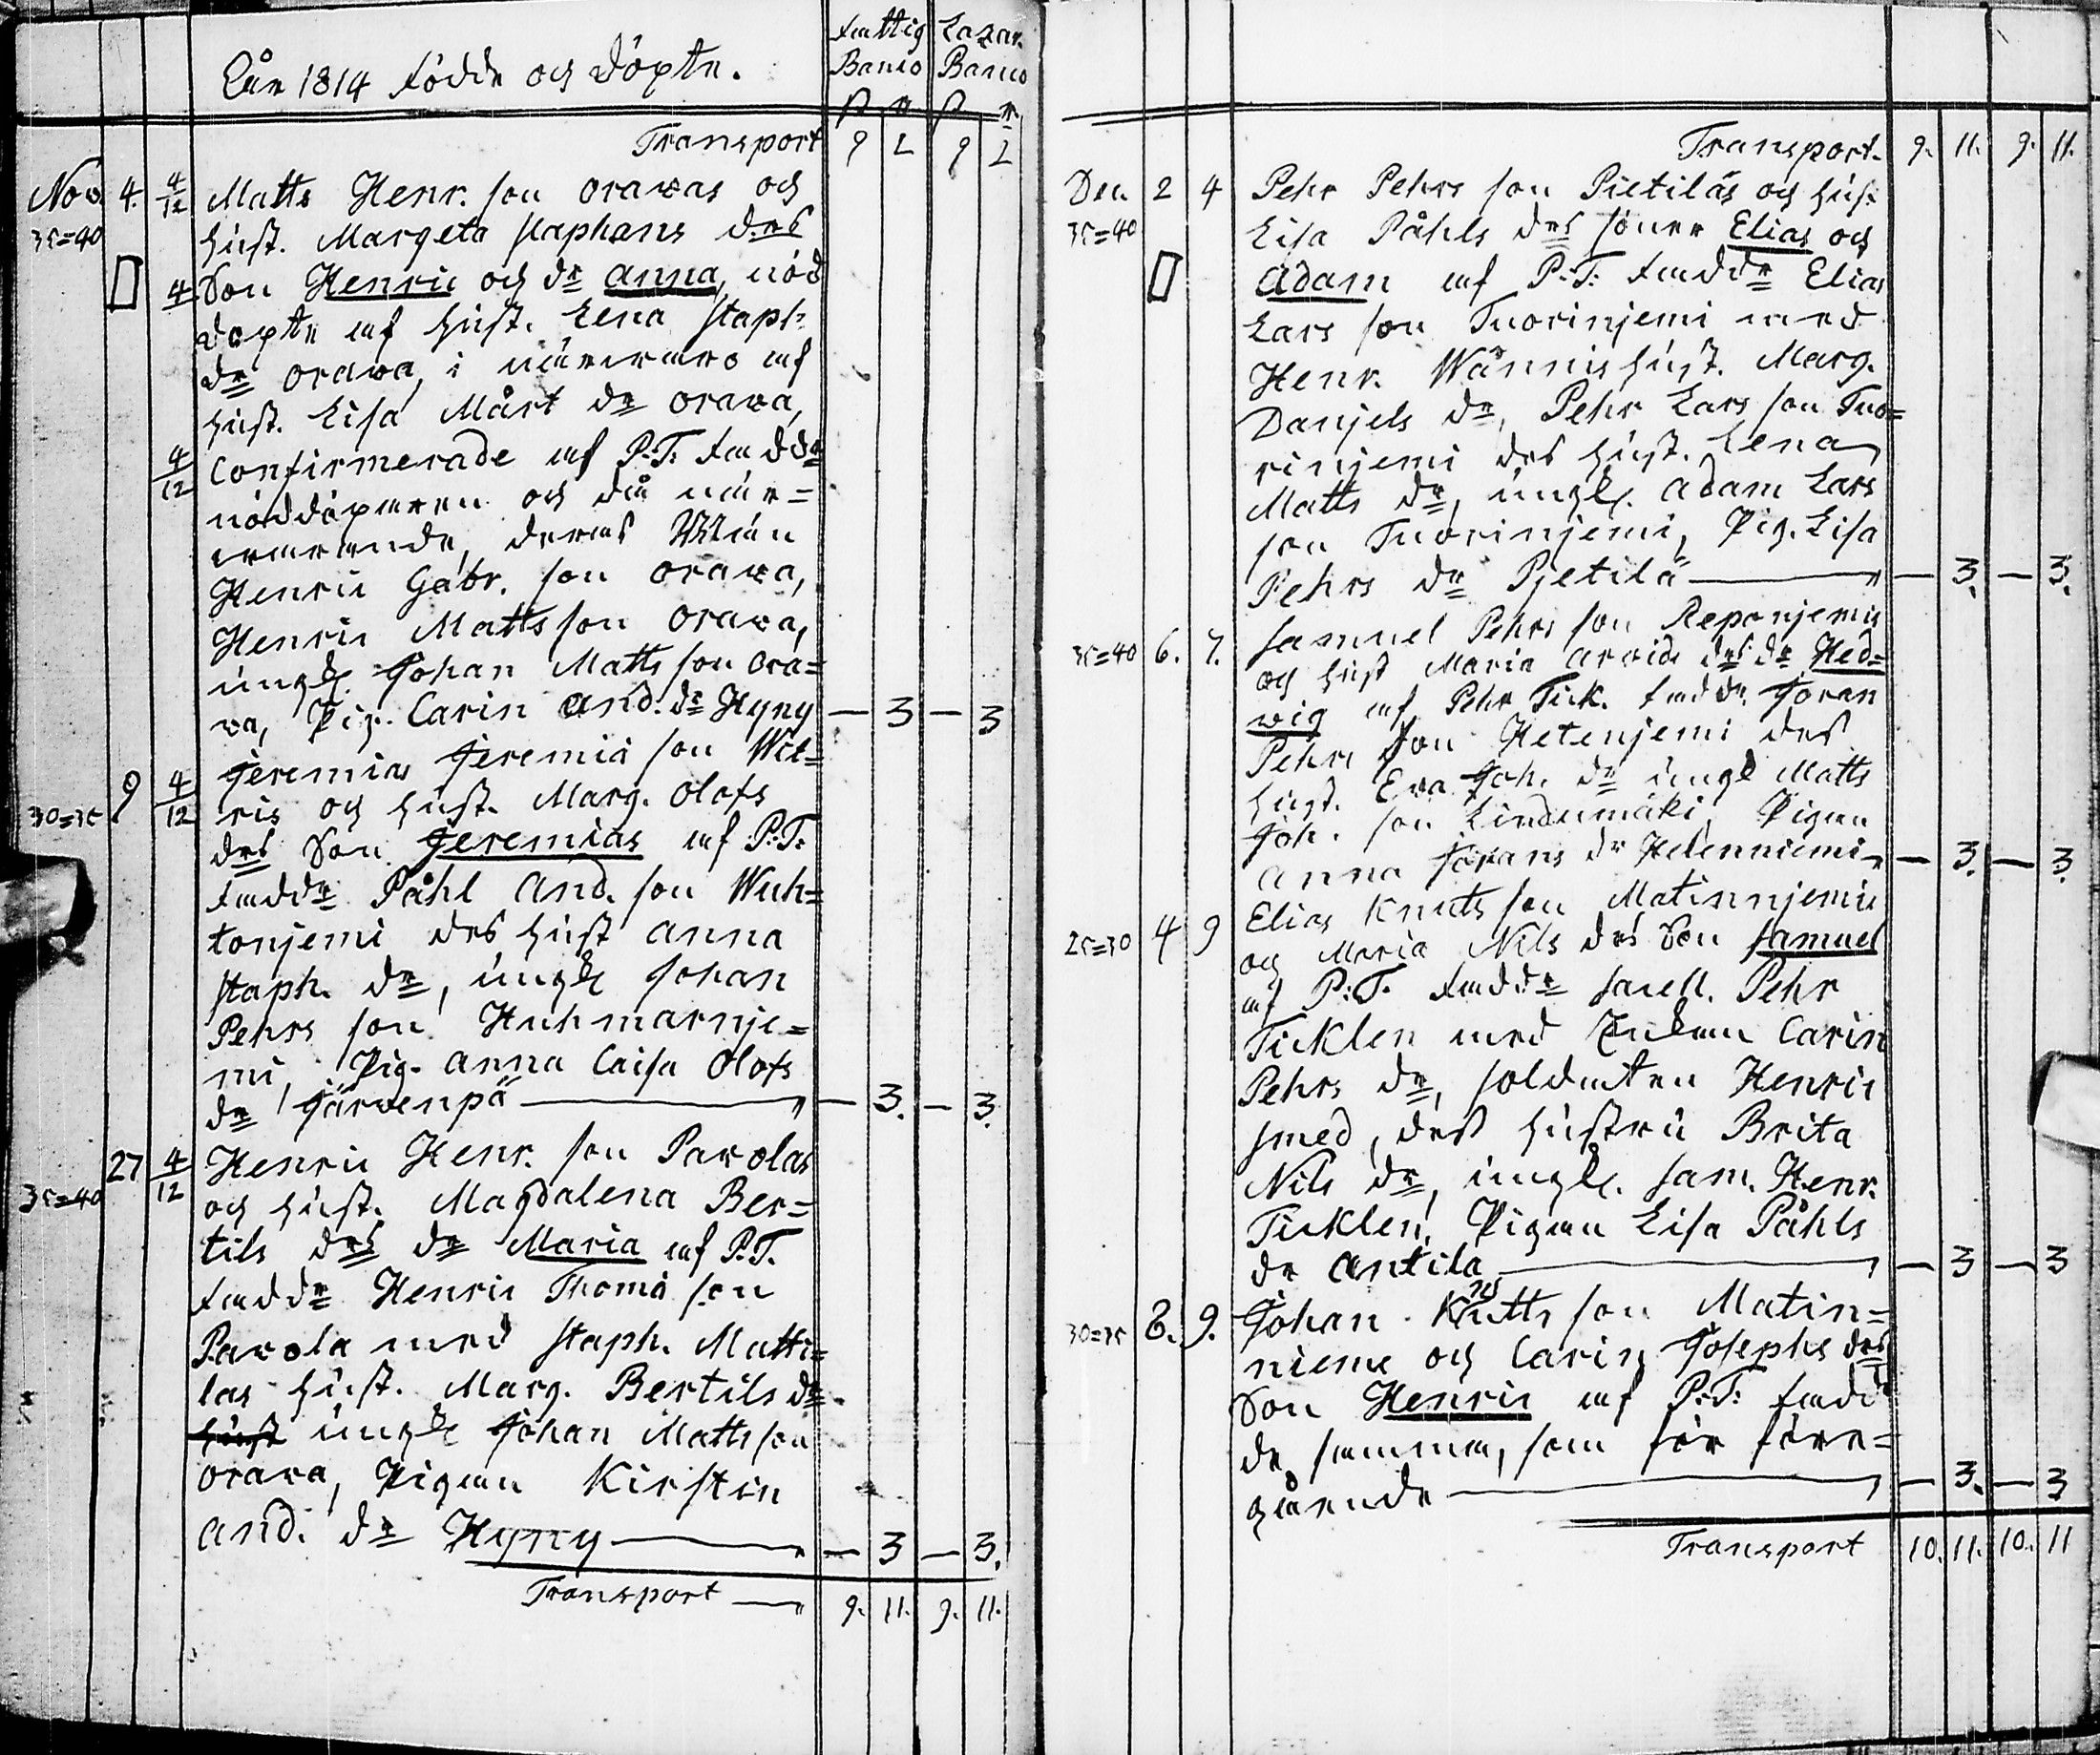 Åhr 1814 födde och döpte.
Fattig Lazar.
Banco Banco
Transport 9 2 9 2
Nov. 4. 4/12 Matts Henr. son Orawas och
35=40 hust. Margeta Staphans des
4. Son Henric och dr Anna, nöd
döpte af hust. Lena Staph.
dr Orawa, i närwaro af
hust. Lisa Mårt dr Orawa,
4/12 Confirmerade af P.T. faddr
nöddöparen och då när=
warande, deras Män
Henric Gabr. son Orawa,
Henric Matts son Orawa,
ungk. Johan Matts son Ora=
wa, Pig. Carin And. dr Hyny — 3 — 3
9 4/12 Jeremias Jeremiæ son Wit=
30=35 ris och hust. Marg. Olofs
des Son Jeremias af P.T.
faddr Påhl And. son Wuh=
tonjemi des hust Anna
Staph. dr, ungk Johan
Pehrs son Huhmarnje=
mi, Pig. Anna Caisa Olofs
dr Järwenpä — 3. — 3.
27 4/12 Henric Henr. son Parolas
35=40 och hust. Magdalena Ber=
tils des dr Maria af P.T.
faddr Henric Thomæ son
Parola med Staph. Matti=
las hust. Marg. Bertils dr
hust ungk Johan Matts son
Orawa, Pigan Kirstin
And. dr Hyny — 3 — 3.
Transport 9. 11. 9. 11.
Transport. 9. 11. 9. 11.
Dec. 2 4 Pehr Pehrs son Pietiläs och hust
35=40 Lisa Påhls des söner Elias och
Adam af P.T. faddr Elias
Lars son Tuorinjemi med
Henr. Wännis hust. Marg.
Danjels dr, Pehr Lars son Tuo=
rinjemi des hust. Lena
Matts dr, ungk. Adam Lars
son Tuorinjemi, Pig. Lisa
Pehrs dr Pjetilä — 3. — 3.
35=40 6. 7. Samuel Pehrs son Reponjemis
och hust Maria Arvids des dr Hed=
wig af Pehr Tick. faddr. Joran
Pehrs son Hetenjemi des
hust. Eva Joh. dr ungk Matts
Joh. son Lindumäki, Pigan
Anna Jorans dr Hetenniemi — 3. — 3.
25=30 4 9 Elias Knuts son Matinnjemis
och Maria Nils des Son Samuel
af P.T. faddr Pehr
Ticklen med Enkan Carin
Pehrs dr, Soldaten Henric
Smed, dess hustru Brita
Nils dr, ungk. Sam. Henr.
Ticklen, Pigan Lisa Påhls
dr Antila — 3 — 3
30=35 8. 9. Johan Knuts son Matin=
nieme och Carin Josephs des
Son Henric af P.T. fad
dr samma, som för före=
gående — 3. — 3
Transport 10. 11. 10. 11